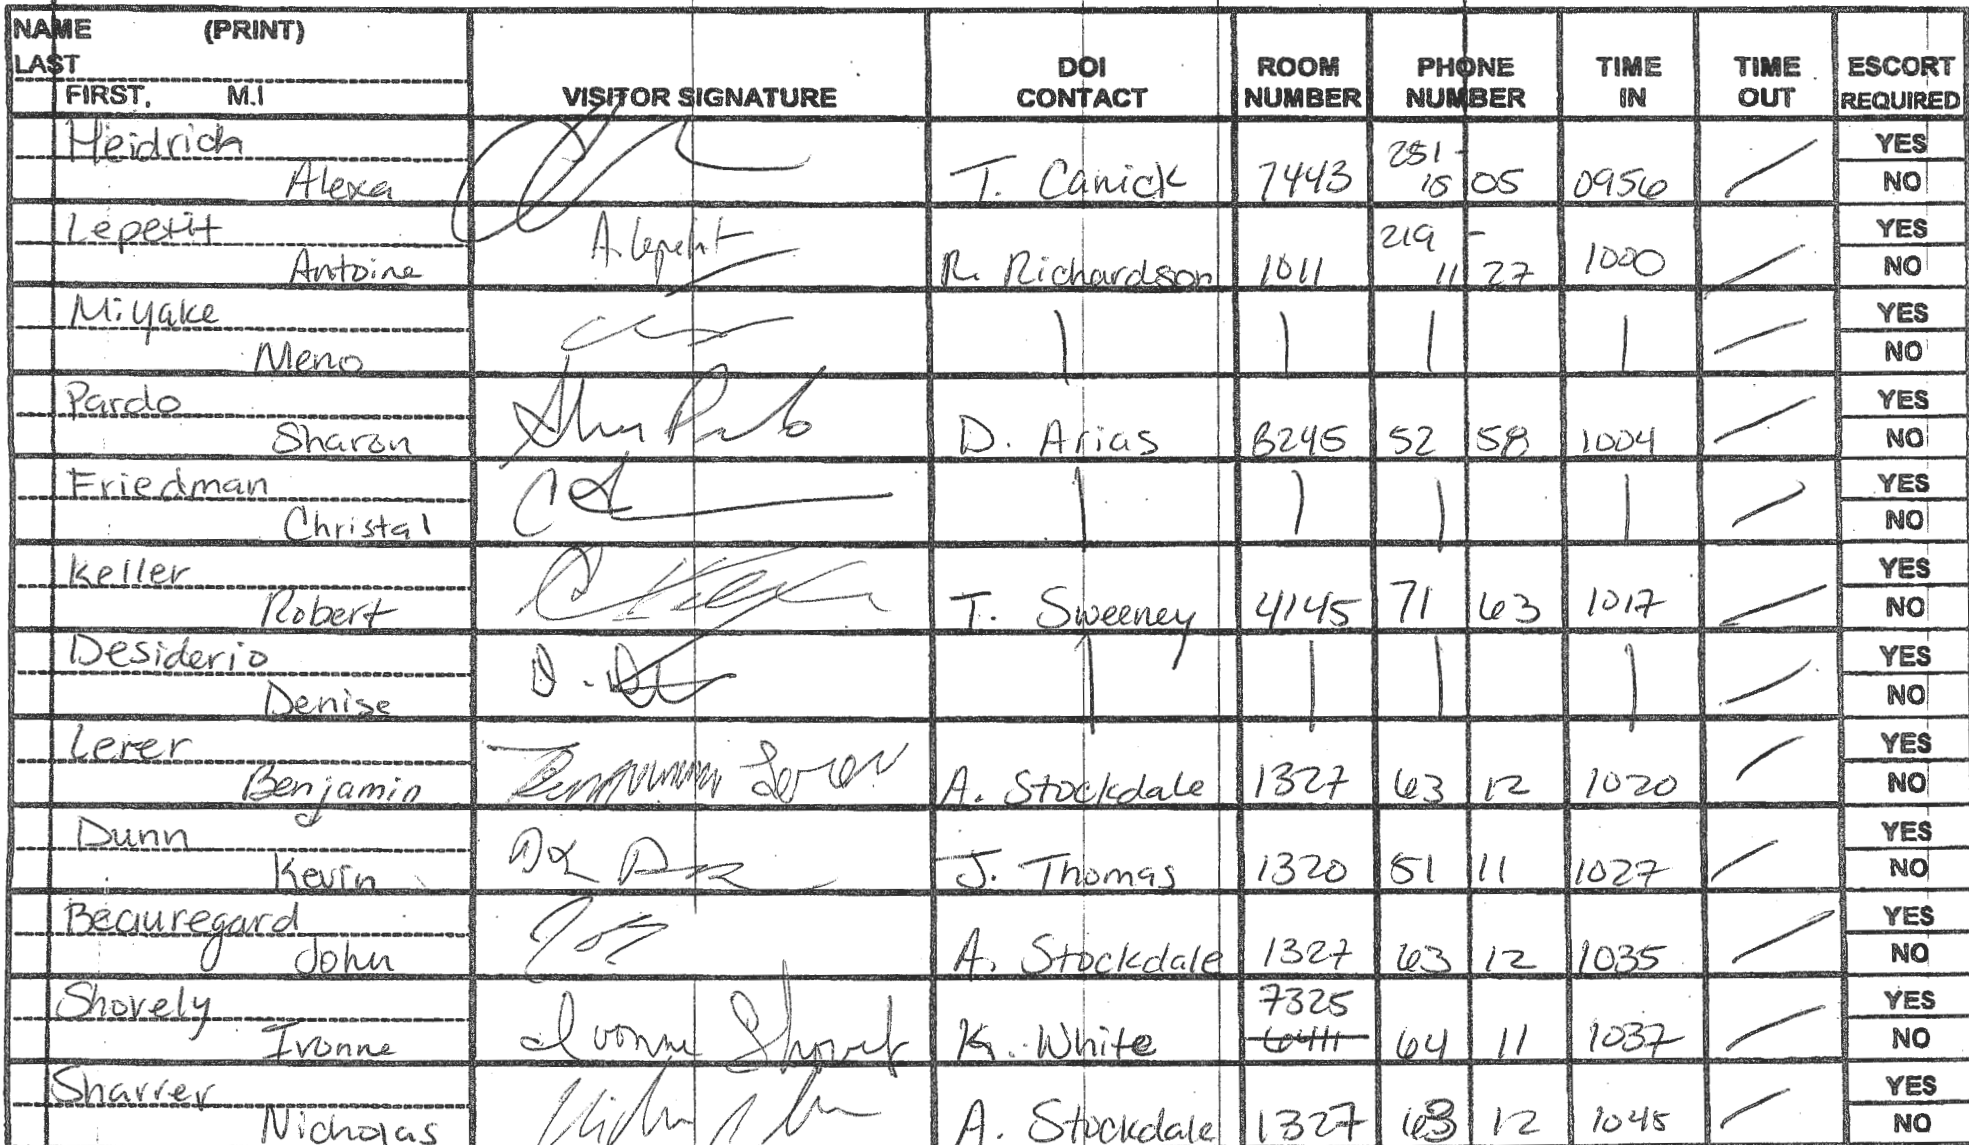 NAME (PRINT)
LAST
FIRST, M.I
VISITOR SIGNATURE
DOI CONTACT
ROOM NUMBER
PHONE NUMBER
TIME IN
TIME OUT
ESCORT REQUIRED
Heidrich
Alexa T. Canick 7443 251-1505 0956 YES NO
Lepetit
Antoine A. Lepetit R. Richardson 1011 219-1127 1000 YES NO
Miyake
Meno YES NO
Pardo
Sharon D. Arias 8245 52 58 1004 YES NO
Friedman
Christal YES NO
Keller
Robert T. Sweeney 4145 71 63 1017 YES NO
Desiderio
Denise YES NO
Lerer
Benjamin Benjamin Lerer A. Stockdale 1327 63 12 1020 YES NO
Dunn
Kevin J. Thomas 1320 51 11 1027 YES NO
Beauregard
John A. Stockdale 1327 63 12 1035 YES NO
Shovely
Ivonne Ivonne K. White 7325 64 11 1037 YES NO
Sharrer
Nicholas A. Stockdale 1327 63 12 1045 YES NO